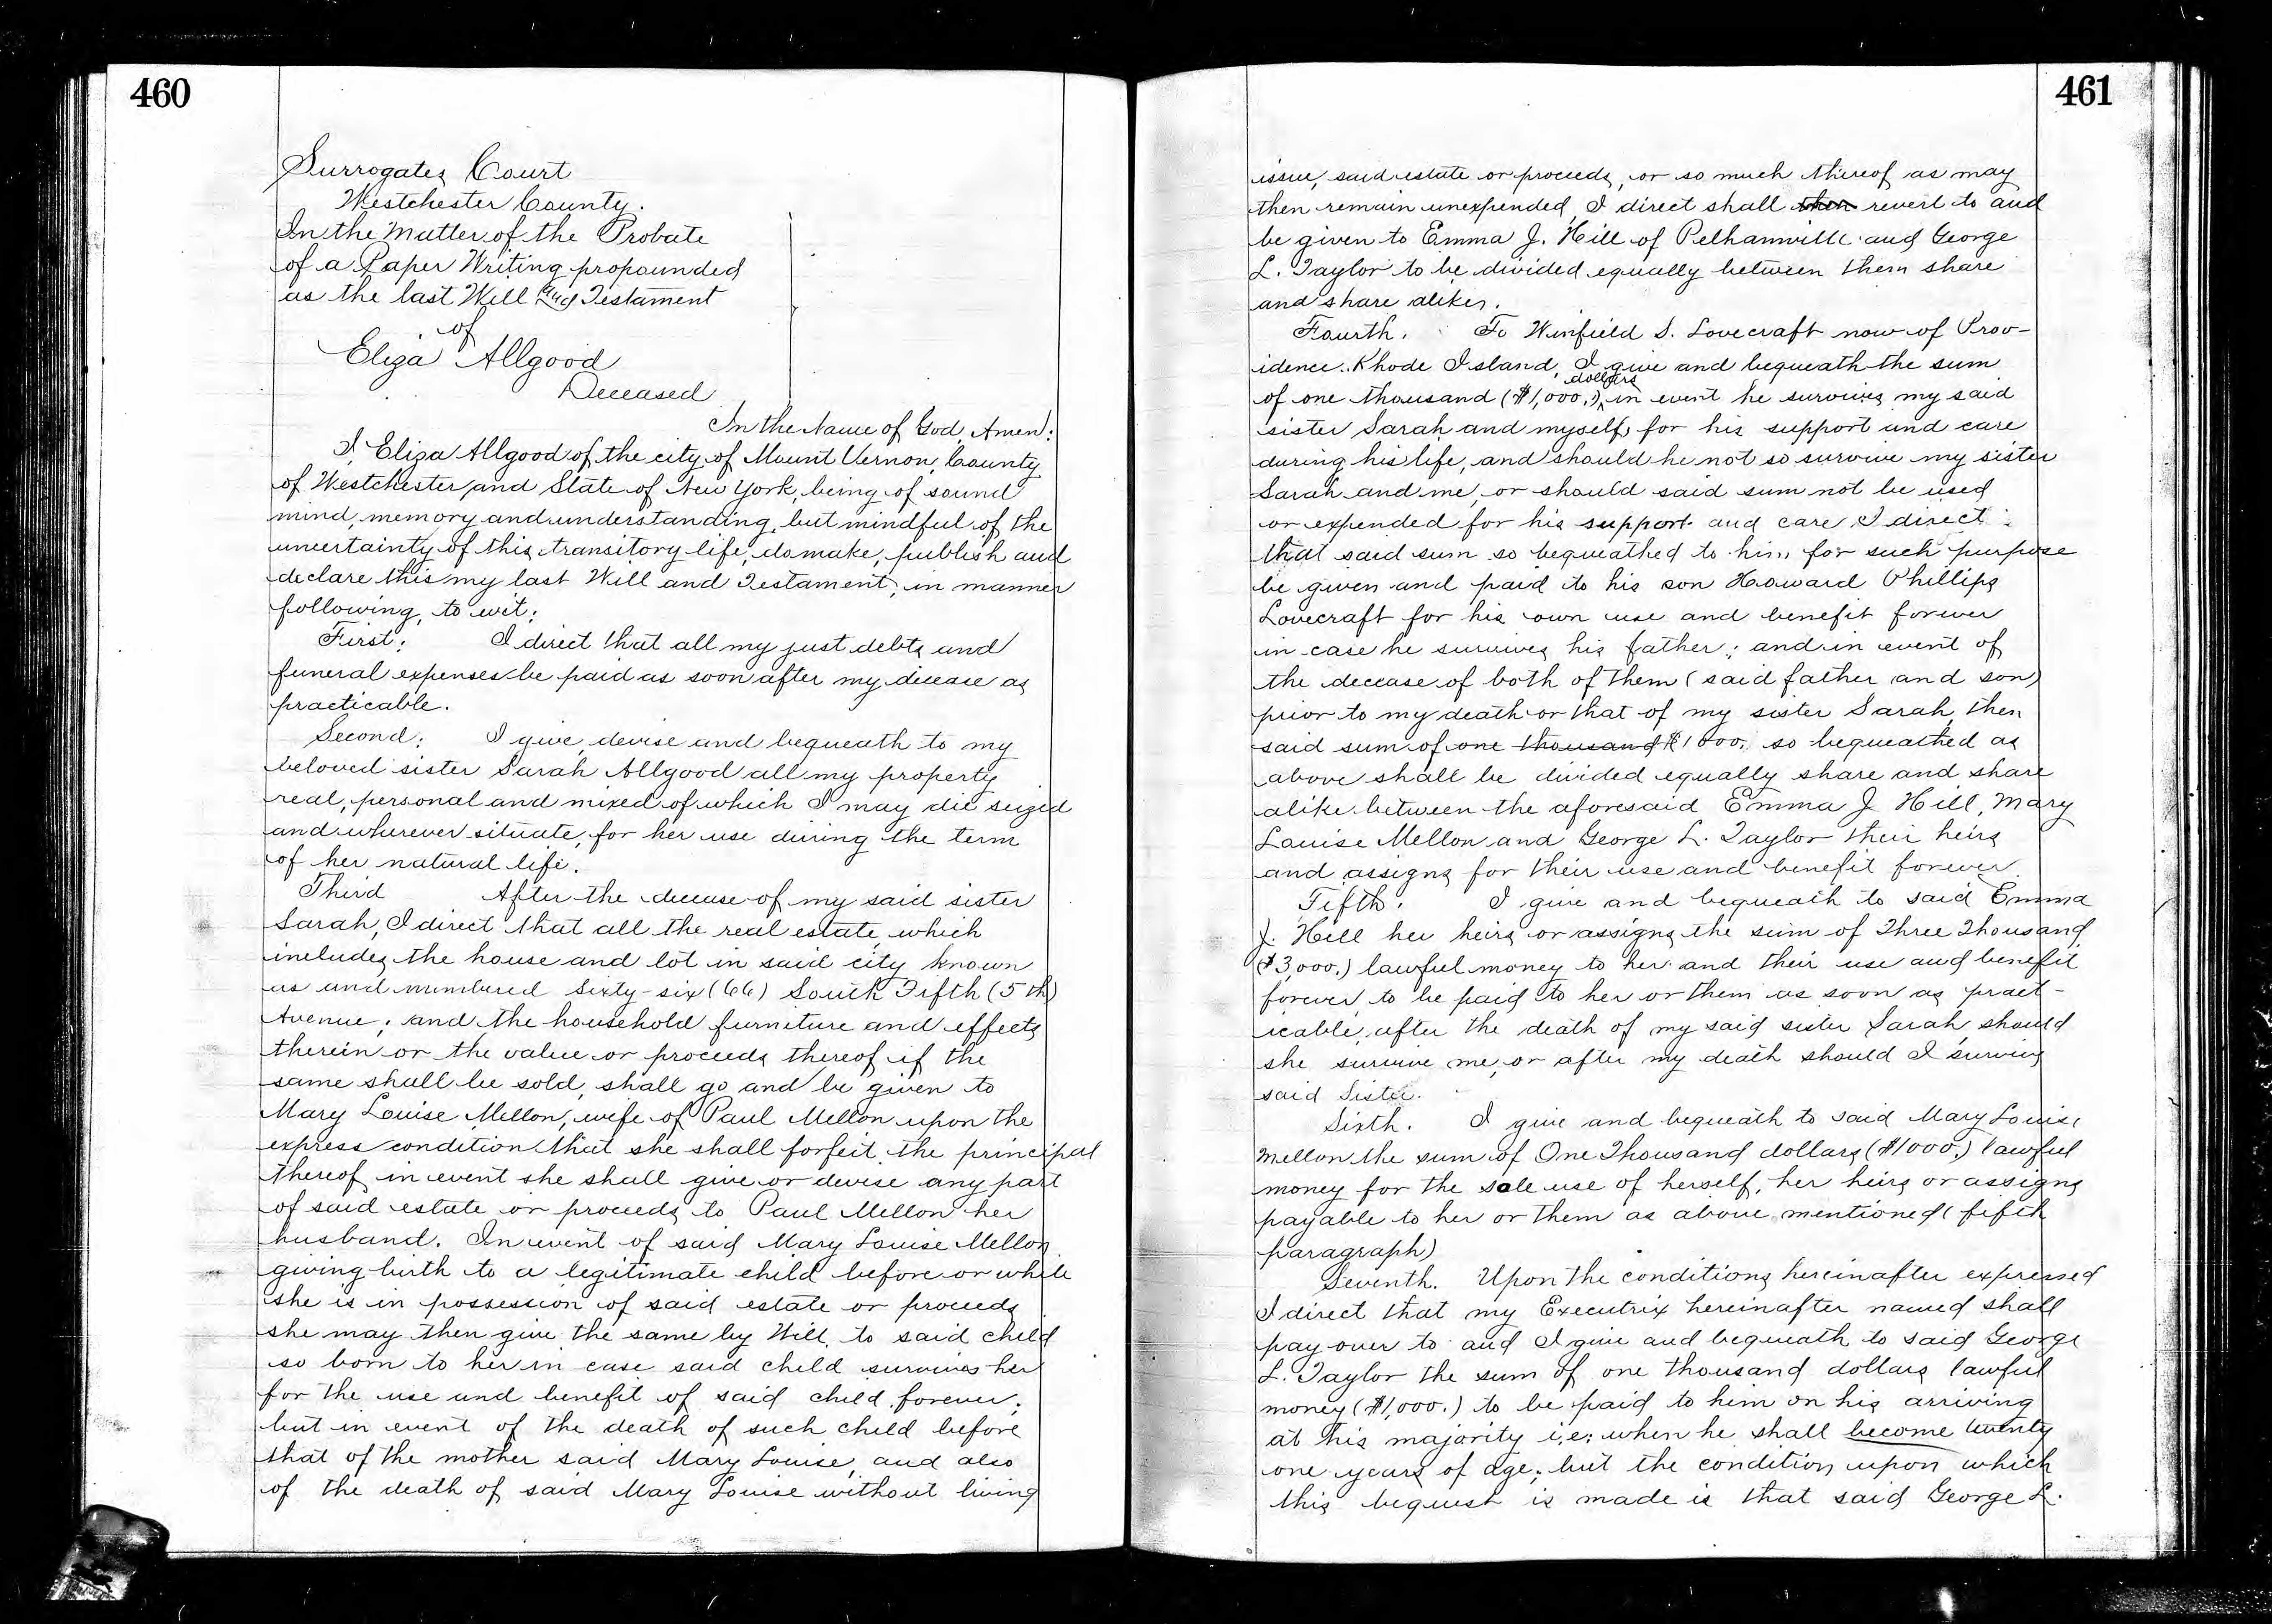 460
Surrogates Court
Westchester County.
In the Matter of the Probate
of a Paper Writing propounded
as the last Will and Testament
of
Eliza Allgood
Deceased
In the Name of God, Amen:
I, Eliza Allgood of the city of Mount Vernon, County
of Westchester and State of New York, being of sound
mind, memory and understanding, but mindful of the
uncertainty of this transitory life, do make, publish and
declare this my last Will and Testament, in manner
following, to wit:
First: I direct that all my just debts and
funeral expenses be paid as soon after my decease as
practicable.
Second: I give, devise and bequeath to my
beloved sister Sarah Allgood all my property
real, personal and mixed of which I may die seized
and wherever situate, for her use during the term
of her natural life.
Third After the decease of my said sister
Sarah, I direct that all the real estate, which
includes the house and lot in said city known
as and numbered Sixty-six (66) South Fifth (5th)
Avenue; and the household furniture and effects
therein or the value or proceeds thereof if the
same shall be sold, shall go and be given to
Mary Louise Mellon, wife of Paul Mellon upon the
express condition that she shall forfeit the principal
thereof in event she shall give or devise any part
of said estate or proceeds to Paul Mellon her
husband. In event of said Mary Louise Mellon
giving birth to a legitimate child before or while
she is in possession of said estate or proceeds
she may then give the same by Will to said child
so born to her in case said child survives her
for the use and benefit of said child forever;
but in event of the death of such child before
that of the mother said Mary Louise, and also
of the death of said Mary Louise without living
461
issue, said estate or proceeds, or so much thereof as may
then remain unexpended, I direct shall then revert to and
be given to Emma J. Hill of Pelhamville and George
L. Taylor to be divided equally between them share
and share alike.
Fourth. To Winfield S. Lovecraft now of Prov-
idence. Rhode Island, I give and bequeath the sum
of one thousand ($1,000.) dollars in event he survives my said
sister Sarah and myself, for his support and care
during his life, and should he not so survive my sister
Sarah and me, or should said sum not be used
or expended for his support and care, I direct
that said sum so bequeathed to him for such purpose
be given and paid to his son Howard Phillips
Lovecraft for his own use and benefit forever
in case he survives his father; and in event of
the decease of both of them (said father and son)
prior to my death or that of my sister Sarah, then
said sum of one thousand $1000. so bequeathed as
above shall be divided equally share and share
alike between the aforesaid Emma J Hill, Mary
Louise Mellon and George L. Taylor their heirs
and assigns for their use and benefit forever.
Fifth. I give and bequeath to said Emma
J. Hill her heirs or assigns the sum of Three Thousand
($3,000.) lawful money to her and their use and benefit
forever, to be paid to her or them as soon as pract-
icable, after the death of my said sister Sarah, should
she survive me, or after my death should I survive
said Sister.
Sixth. I give and bequeath to said Mary Louise
Mellon the sum of One Thousand dollars ($1000.) lawful
money for the sole use of herself, her heirs or assigns
payable to her or them as above mentioned (fifth
paragraph)
Seventh. Upon the conditions hereinafter expressed
I direct that my Executrix hereinafter named shall
pay over to and I give and bequeath to said George
L. Taylor the sum of one thousand dollars lawful
money ($1,000.) to be paid to him on his arriving
at his majority i.e: when he shall become twenty
one years of age; but the condition upon which
this bequest is made is that said George L.